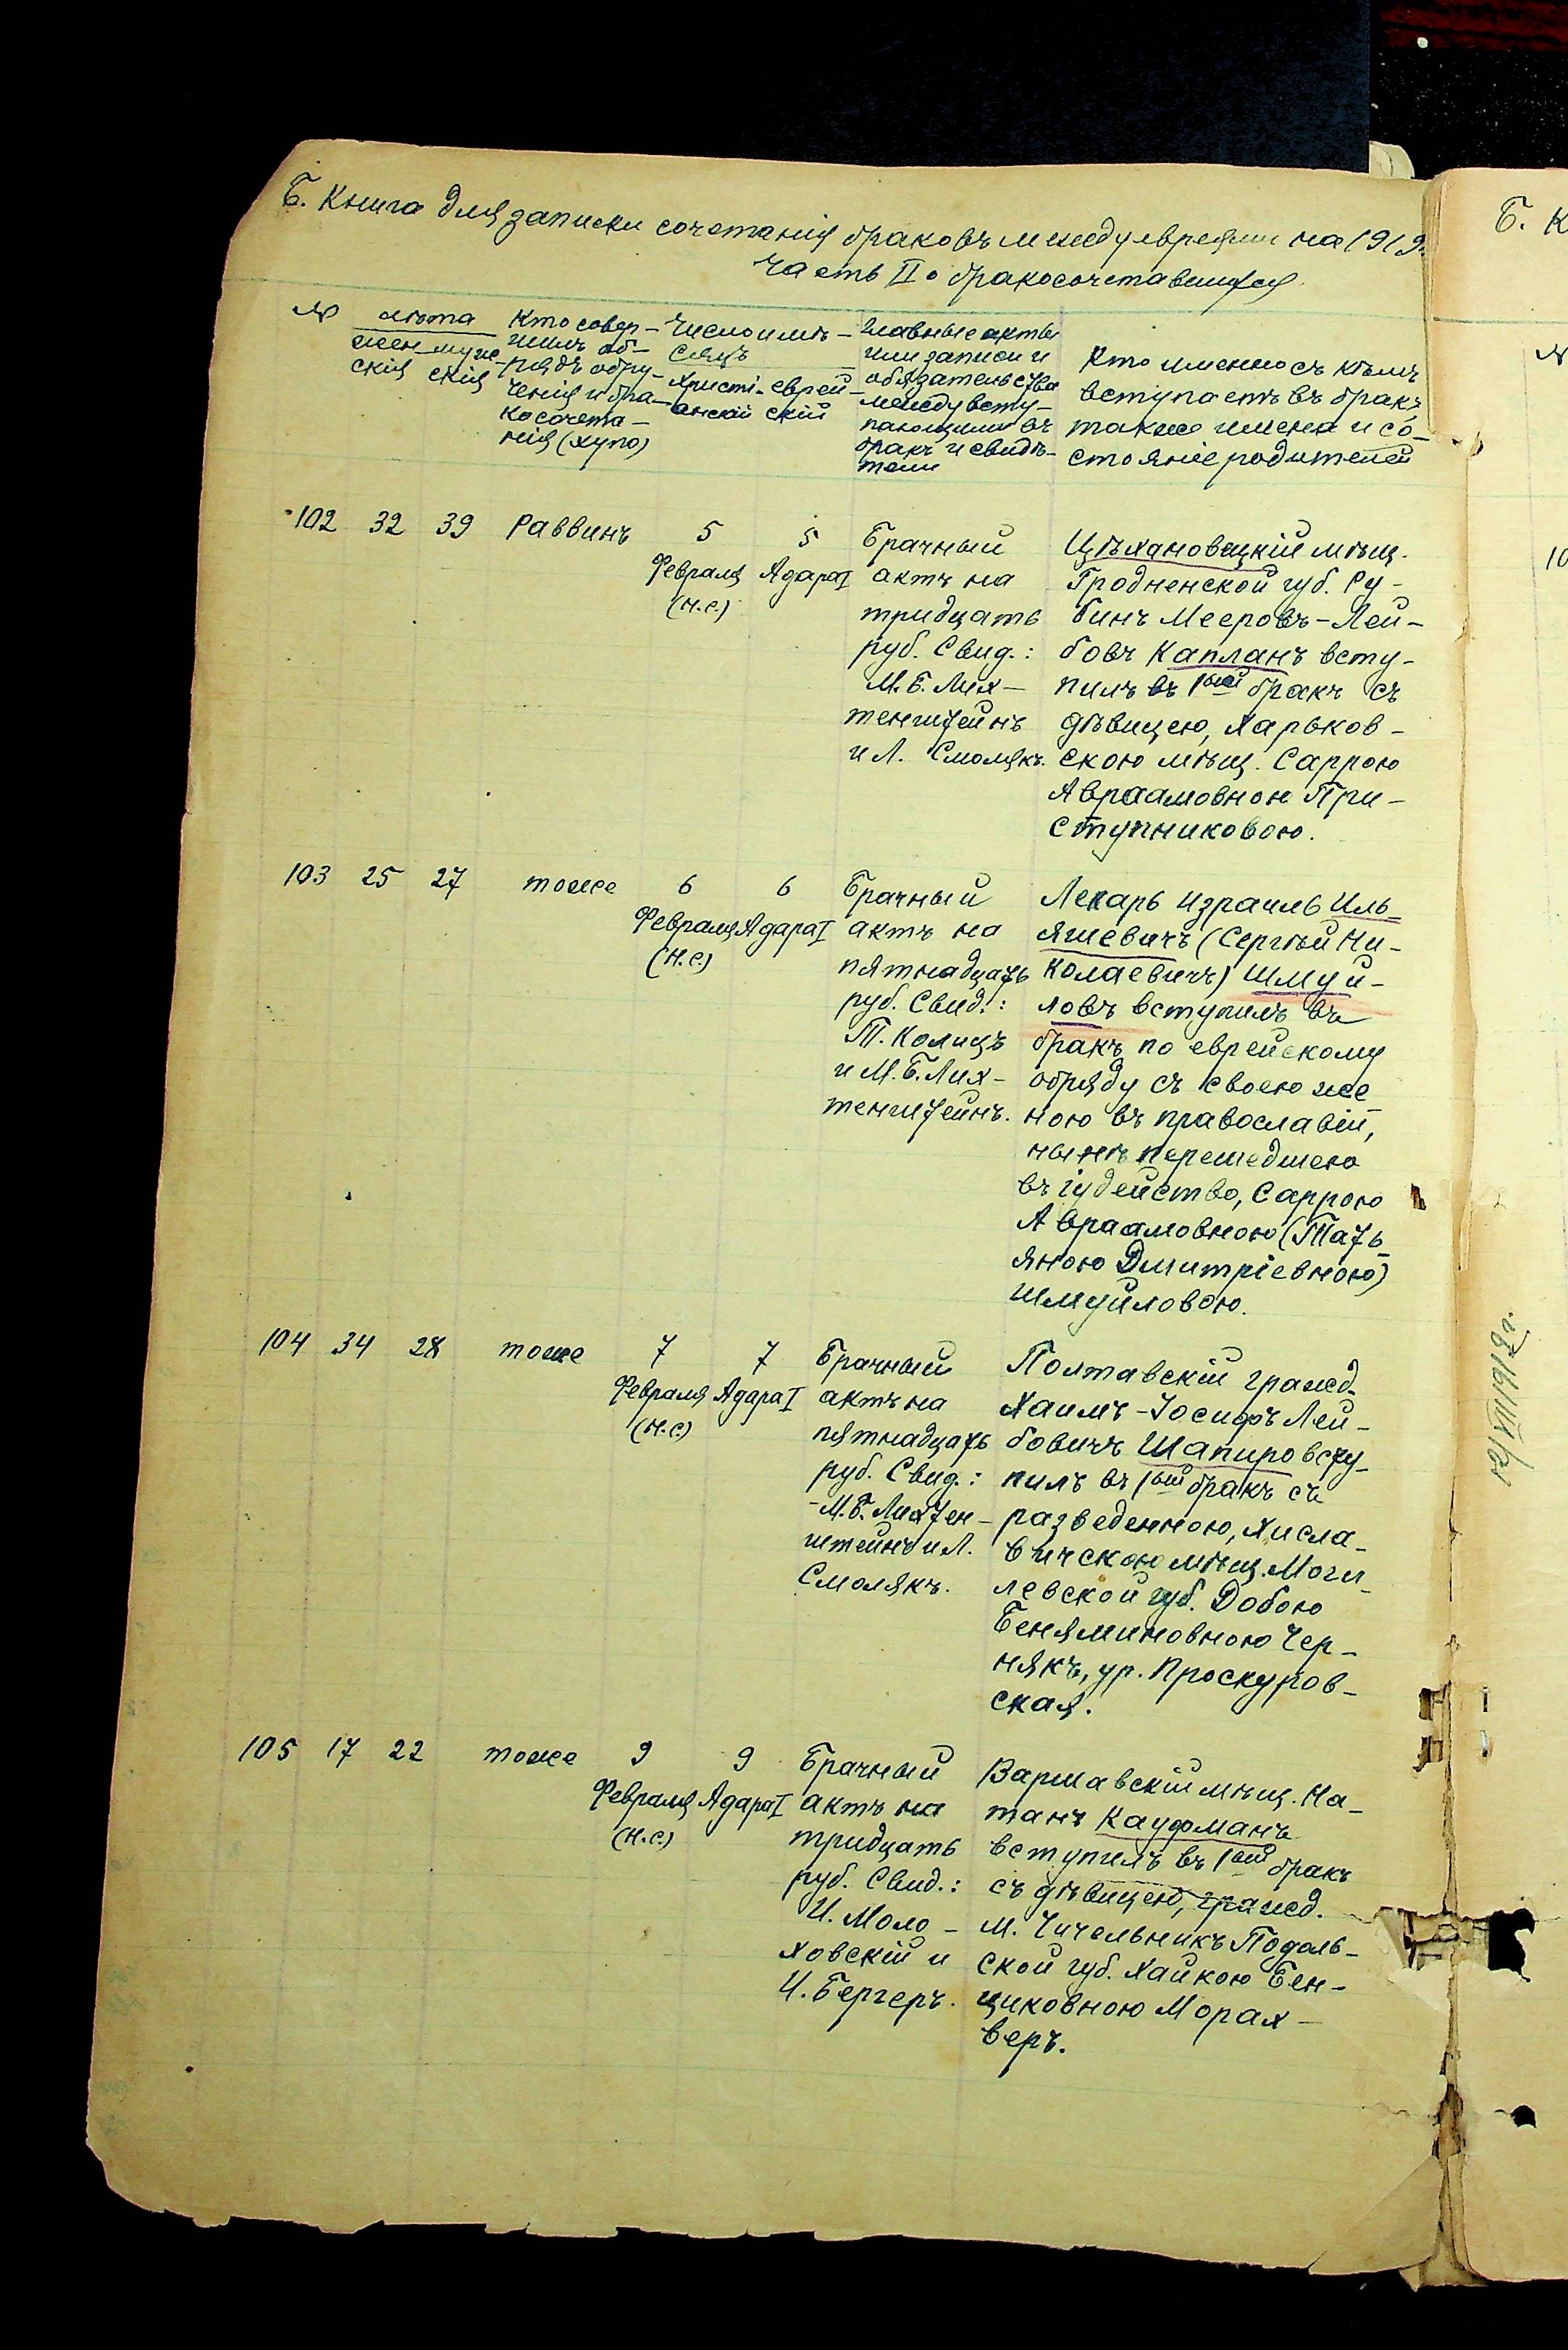 Б. Книга для записки сочетанія браковъ между евреями на 1919.
Часть II о бракосочетавшихся
№
лѣта
жен-
скія
муже-
скія
Кто совер-
шилъ об-
рядъ обру-
ченія и бра-
косочета-
нія (хупо)
Число и мѣ-
сяцъ
христі-
анскій
еврей-
скій
Главные акты
или записи и
обязательства
между всту-
пающими въ
бракъ и свидѣ-
тели
Кто именно съ кѣмъ
вступаетъ въ бракъ,
также имена и со-
стояніе родителей
102 32 39 Раввинъ
5
Февраля
(н.с.)
5
Адара I
Брачный
актъ на
тридцать
руб. Свид.:
М.Б. Лих-
тенштейнъ
и Л. Смолякъ.
Цѣхановецкій мѣщ.
Гродненской губ. Ру-
бинъ Мееровъ-Лей-
бовъ Капланъ всту-
пилъ въ 1ый бракъ съ
дѣвицею, Харьков-
скою мѣщ. Саррою
Авраамовною При-
ступниковою.
103 25 27 тоже
6
Февраля
(н.с.)
6
Адара I
Брачный
актъ на
пятнадцать
руб. Свид.:
Т. Колицъ
и М.Б. Лих-
тенштейнъ.
Лекарь Израиль Иль-
яшевичъ (Сергѣй Ни-
колаевичъ) Шмуй-
ловъ вступилъ въ
бракъ по еврейскому
обряду съ своею же-
ною въ православіи,
нынѣ перешедшею
въ іудейство, Саррою
Авраамовною (Тать-
яною Дмитріевною)
Шмуйловою.
104 34 28 тоже
7
Февраля
(н.с.)
7
Адара I
Брачный
актъ на
пятнадцать
руб. Свид.:
М.Б. Лихтен-
штейнъ и Л.
Смолякъ.
Полтавскій гражд.
Хаимъ-Іосифъ Лей-
бовичъ Шапиро всту-
пилъ въ 1ый бракъ съ
разведенною, Хисла-
вичскою мѣщ. Моги-
левской губ. Добою
Беняминовною Чер-
някъ, ур. Проскуров-
ская.
105 17 22 тоже
9
Февраля
(н.с.)
9
Адара I
Брачный
актъ на
тридцать
руб. Свид.:
И. Моло-
ховскій и
И. Бергеръ.
Варшавскій мѣщ. На-
танъ Кауфманъ
вступилъ въ 1ый бракъ
съ дѣвицею, гражд.
м. Чичельникъ Подоль-
ской губ. Хайкою Бен-
ціковною Морах-
веръ.
Б. К
№
10